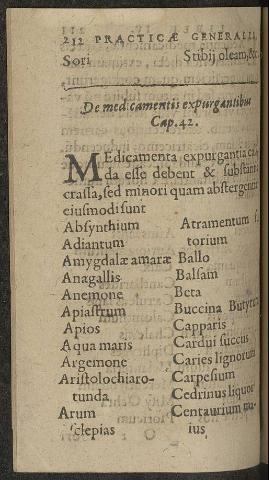 212 PRACTICÆ GENERALI
Sori Stibij oleam, &c
De medicamentis expurgantibus
Cap. 42.
MEdicamenta expurgantia
da esse debent & substant
crassa, sed minori quam abstergent
eiusmodi sunt
Absynthium
Adiantum
Amygdalæ amaræ
Anagallis
Anemone
Apiastrum
Apios
Aqua maris
Argemone
Aristolochia ro-
tunda
Arum
sclepias
Atramentum
torium
Ballo
Balsam
Beta
Buccina Butyr
Capparis
Cardui succus
Caries lignorum
Carpesium
Cedrinus liquor
Centaurium
ius